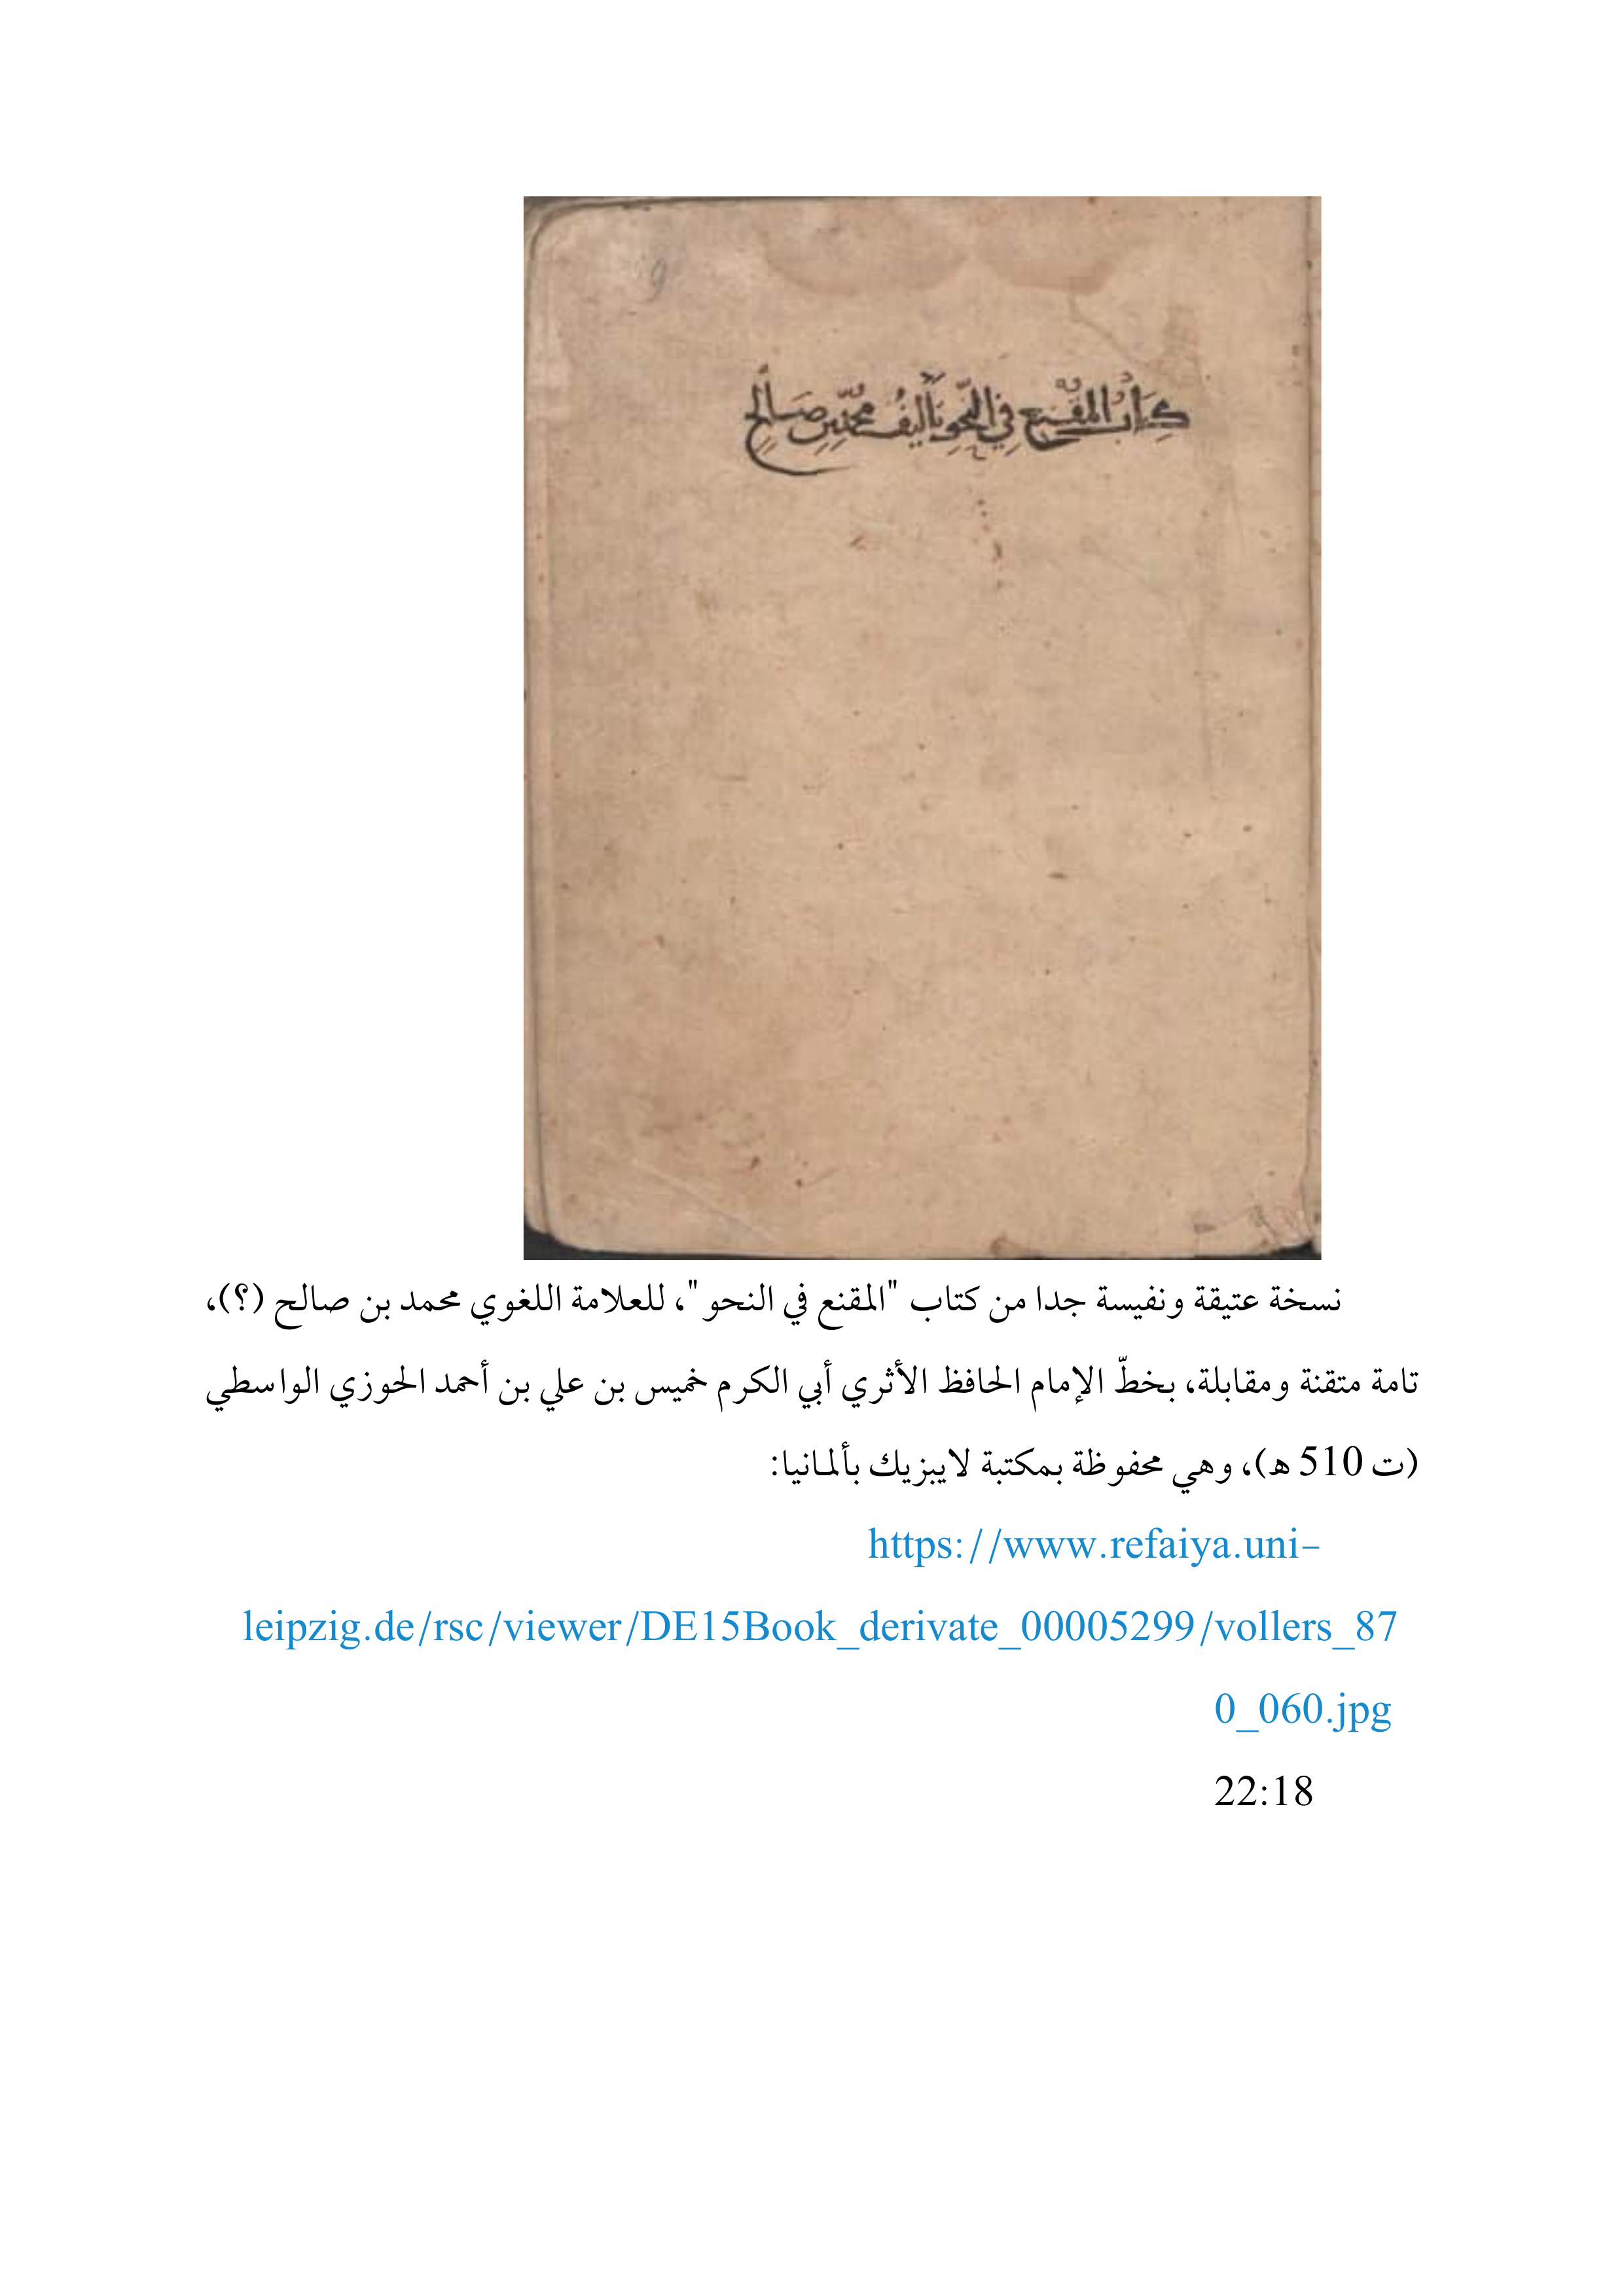 9
كِتَابُ المُقْنِعِ فِي النَّحْوِ تَأليفُ مُحمَّدِبنِ صَالحٍ
نسخة عتيقة ونفيسة جدا من كتاب "المقنع في النحو"، للعلامة اللغوي محمد بن صالح (؟)،
تامة متقنة ومقابلة، بخطّ الإمام الحافظ الأثري أبي الكرم خميس بن علي بن أحمد الحوزي الواسطي
(ت 510 هـ)، وهي محفوظة بمكتبة لايبزيك بألمانيا:
https://www.refaiya.uni-
leipzig.de/rsc/viewer/DE15Book_derivate_00005299/vollers_87
0_060.jpg
22:18